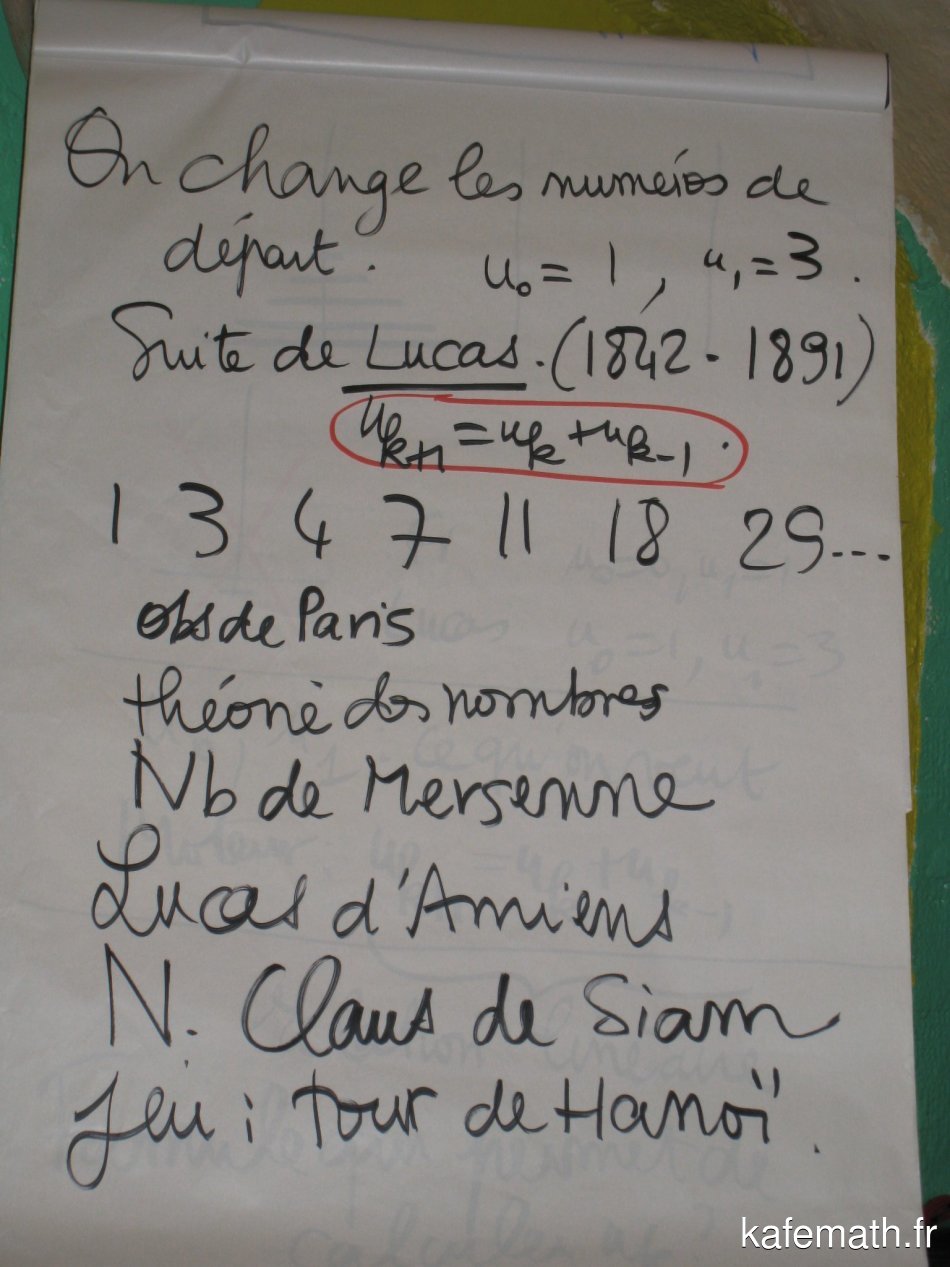 On change les numéros de
départ. u₀ = 1, u₁ = 3.
Suite de Lucas. (1842 - 1891)
uₖ₊₁ = uₖ + uₖ₋₁.
1 3 4 7 11 18 29...
obs de Paris
théorie des nombres
Nb de Mersenne
Lucas d'Amiens
N. Claus de Siam
Jeu : tour de Hanoï.
kafemath.fr